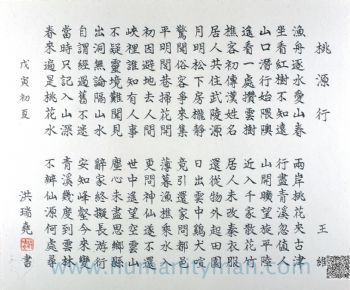 桃源行 王維
漁舟逐水愛山春 兩岸桃花夾古津
坐看紅樹不知遠 行盡青溪忽值人
山口潛行始隈隩 山開曠望旋平陸
遙看一處攢雲樹 近入千家散花竹
樵客初傳漢姓名 居人未改秦衣服
居人共住武陵源 還從物外起田園
月明松下房櫳靜 日出雲中雞犬喧
驚聞俗客爭來集 競引還家問都邑
平明閭巷掃花開 薄暮漁樵乘水入
初因避地去人間 更問神仙遂不還
峽裡誰知有人事 世中遙望空雲山
不疑靈境難聞見 塵心未盡思鄉縣
出洞無論隔山水 辭家終擬長游衍
自謂經過舊不迷 安知峰壑今來變
當時只記入山深 青溪幾度到雲林
春來遍是桃花水 不辨仙源何處尋
戊寅初夏 洪瑞堯書
www.humanityman.com